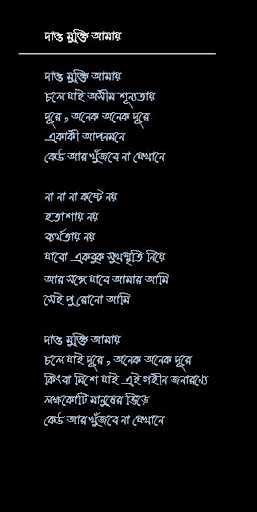 দাও মুক্তি আমায়
দাও মুক্তি আমায়
চলে যাই অসীম শূন্যতায়
দূরে , অনেক অনেক দূরে
একাকী আপনমনে
কেউ আর খুঁজবে না যেখানে
না না না কষ্টে নয়
হতাশায় নয়
ব্যর্থতায় নয়
যাবো একবুক সুখস্মৃতি নিয়ে
আর সঙ্গে যাবে আমার আমি
সেই পুরোনো আমি
দাও মুক্তি আমায়
চলে যাই দূরে , অনেক অনেক দূরে
কিংবা মিশে যাই এই গহীন জনারণ্যে
লক্ষকোটি মানুষের ভিড়ে
কেউ আর খুঁজবে না যেখানে